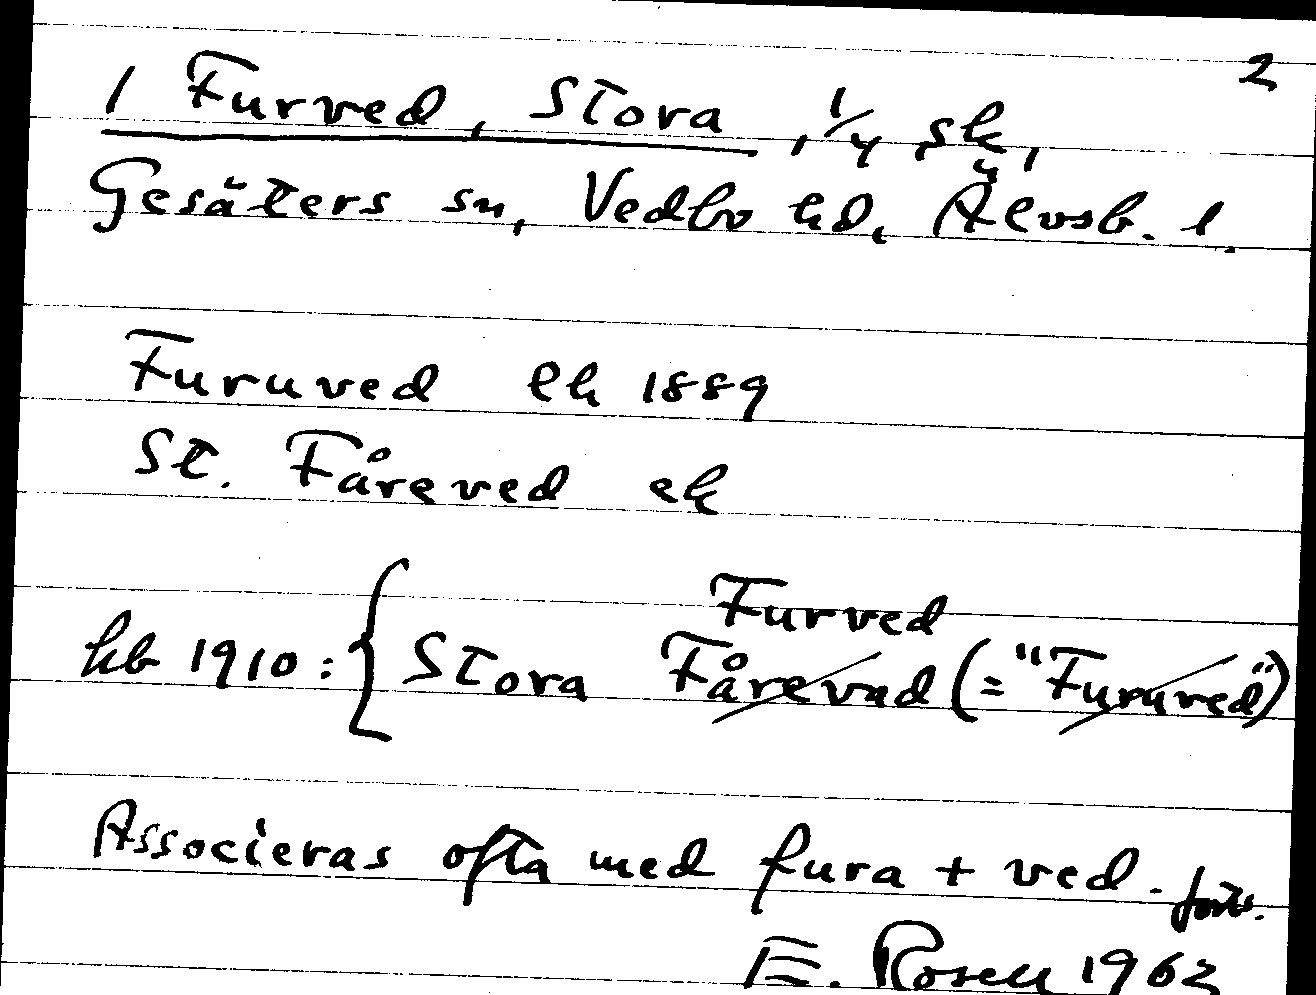 2
1 Furved, Stora, 1/4 sk,
Gesäters sn, Vedbo hd, Älvsb. l.
Furuved ek 1889
St. Fåreved ek
Furved
hb 1910: { Stora Fårevad (= "Furuved")
Associeras ofta med fura + ved. forts.
E. Rosell 1962